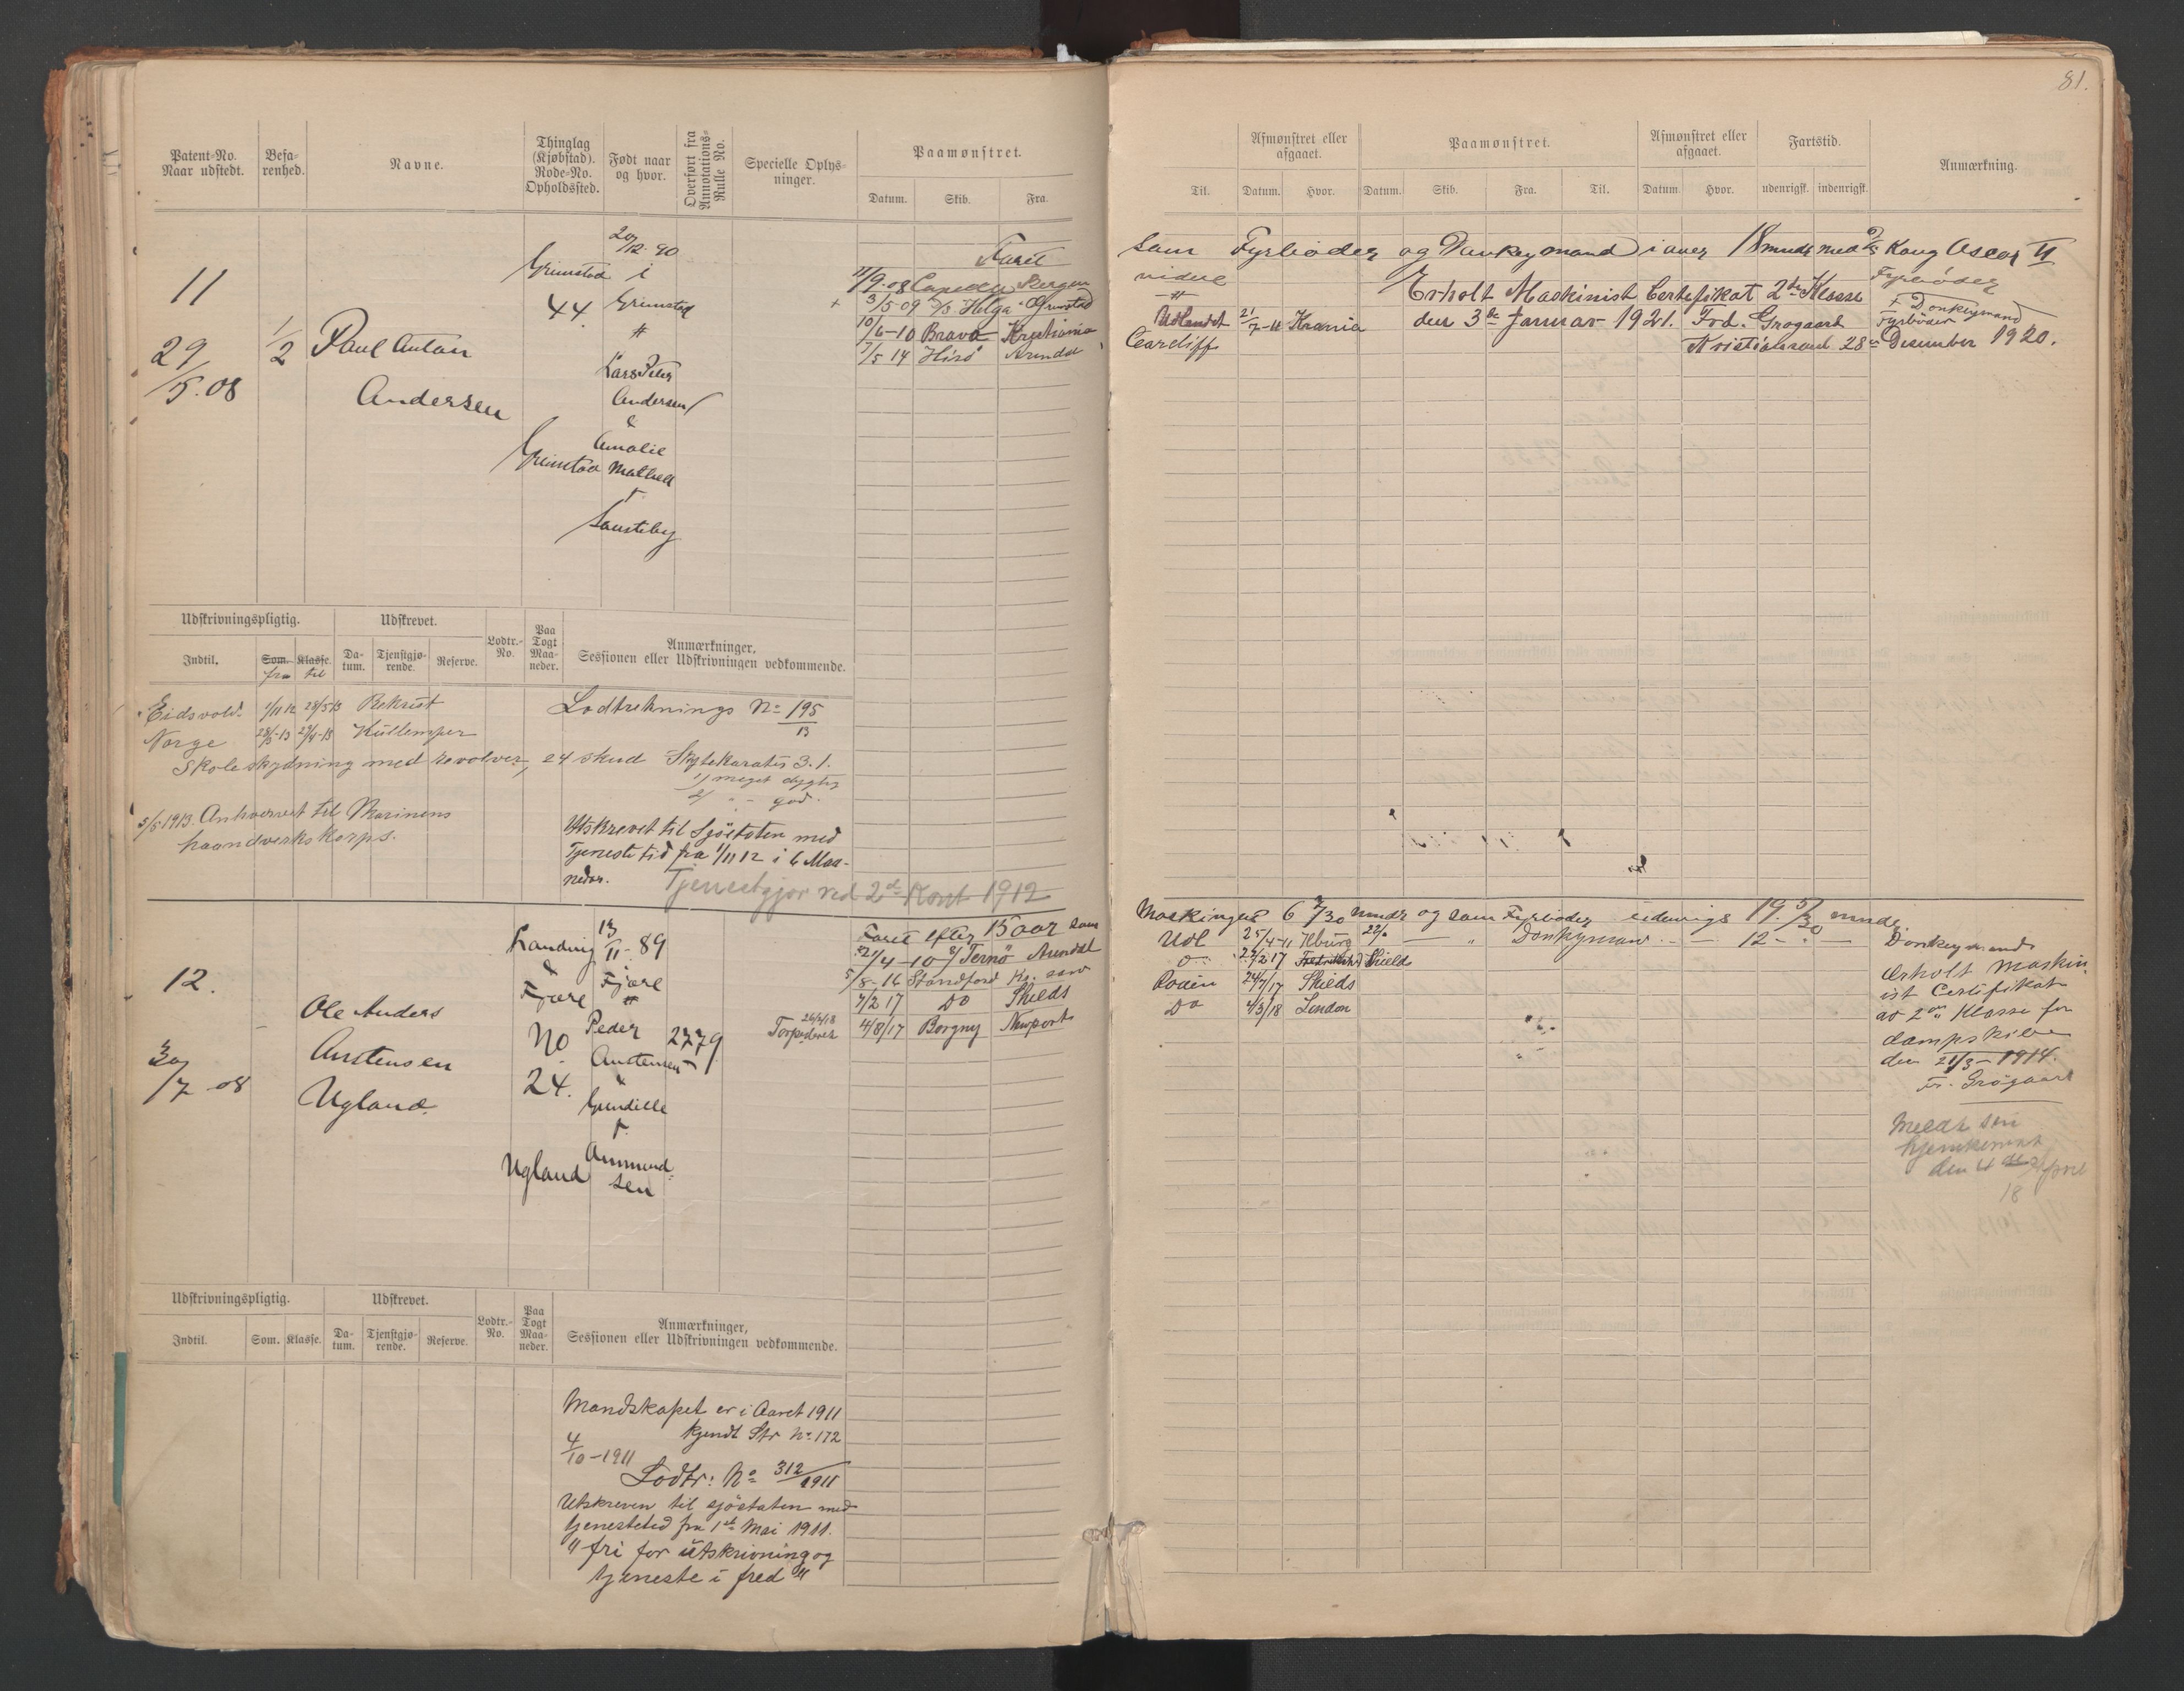 81.
Patent-No. Naar udstedt.
Befarenhed.
Navne.
Thinglag (Kjøbstad). Rode-No. Opholdssted.
Født naar og hvor.
Overført fra Annotations-Rulle No.
Specielle Oplysninger.
Paamønstret.
Datum. Skib. Fra.
Til.
Afmønstret eller afgaaet.
Datum. Hvor.
Paamønstret.
Datum. Skib. Fra. Til.
Afmønstret eller afgaaet.
Datum. Hvor.
Fartstid.
udenrigsk. indenrigsk.
Anmærkning.
11
29/5.08
1/2
Paul Anton
Andersen
Grimstad
44
Grimstad
20/12.90
i
Grimstad
Lars Peter
Andersen
&
Amalie
Mathea
f
Faret som Fyrbøder og Donkeymand i over 18 mndr med Kong Oscar II
11/9.08 Bergen
+ 3/5-09 Helga Grimstad
10/6-10 Brava Kristiania Udlandet 21/7-11 Krania
7/5 14 Hisø Arendal Cardiff
Fyrbøder
+ Donkeymand
Fyrbøder
Erholt Maskinist Certefikat 2de Klasse
den 3de Januar 1921. Fod. Grøgaard
Kristiansand 28de Desember 1920.
Udskrivningspligtig.
Udskrevet.
Indtil. Som. Klasse. Datum. Tjenstgjørende. Reserve.
fra til
Lodtr.-No.
Paa Togt Maaneder.
Anmærkninger, Sessionen eller Udskrivningen vedkommende.
Eidsvold 1/11 12 28/5 13 Rekrut
Norge 28/5-13 Kullemper
Lodtreknings No 195/13
Skoleskydning med revolver, 24 skud Skytekarakter 3.1.
1/ meget dygtig
2/ - god.
5/5 1913. Anhvervet til Marinens
haandverkskorps.
Utskrevet til Sjøetaten med
Tjenestetid fra 1/11 12 i 6 Maa-
neder.
Tjenestgjør ved 2det Kont 1912
12.
30/7-08
Ole Anders
Austensen
Ugland.
Landvig
&
Fjære
No
24.
Ugland
13/11-89
Fjære
Peder
Austensen
&
Gundille
f.
Ammund-
sen
2779
26/2/18
Torpederet
Faret efter 15 aar som Maskingut 6 7/30 mndr og som Fyrbøder udenrigs 19 5/30 mndr.
21/4-10 Ternø Arendal Udl 25/4-11 Hburg Donkyman 12
5/8-16 Standford do 22/2 17 Shields
7/2 17 Do Shields Rouen 24/7/17 Shields
4/8/17 Borgny Newport Do 4/3/18 London
Donkeymand
Erholt Maskin-
ist Certifikat
av 2en Klasse for
dampskibe
den 21/3-1914.
Fr. Grøgaard
Meldt sin
hjemkomst
den 4de april
18
Udskrivningspligtig.
Udskrevet.
Indtil. Som. Klasse. Datum. Tjenstgjørende. Reserve.
Lodtr.-No.
Paa Togt Maaneder.
Anmærkninger, Sessionen eller Udskrivningen vedkommende.
Mandskapet er i Aaret 1911
kjendt Str No 172
4/10-1911
Lodtr: No 312/1911
Utskreven til sjøetaten med
tjenestetid fra 1ste Mai 1911.
"fri for utskrivning og
tjeneste i fred"